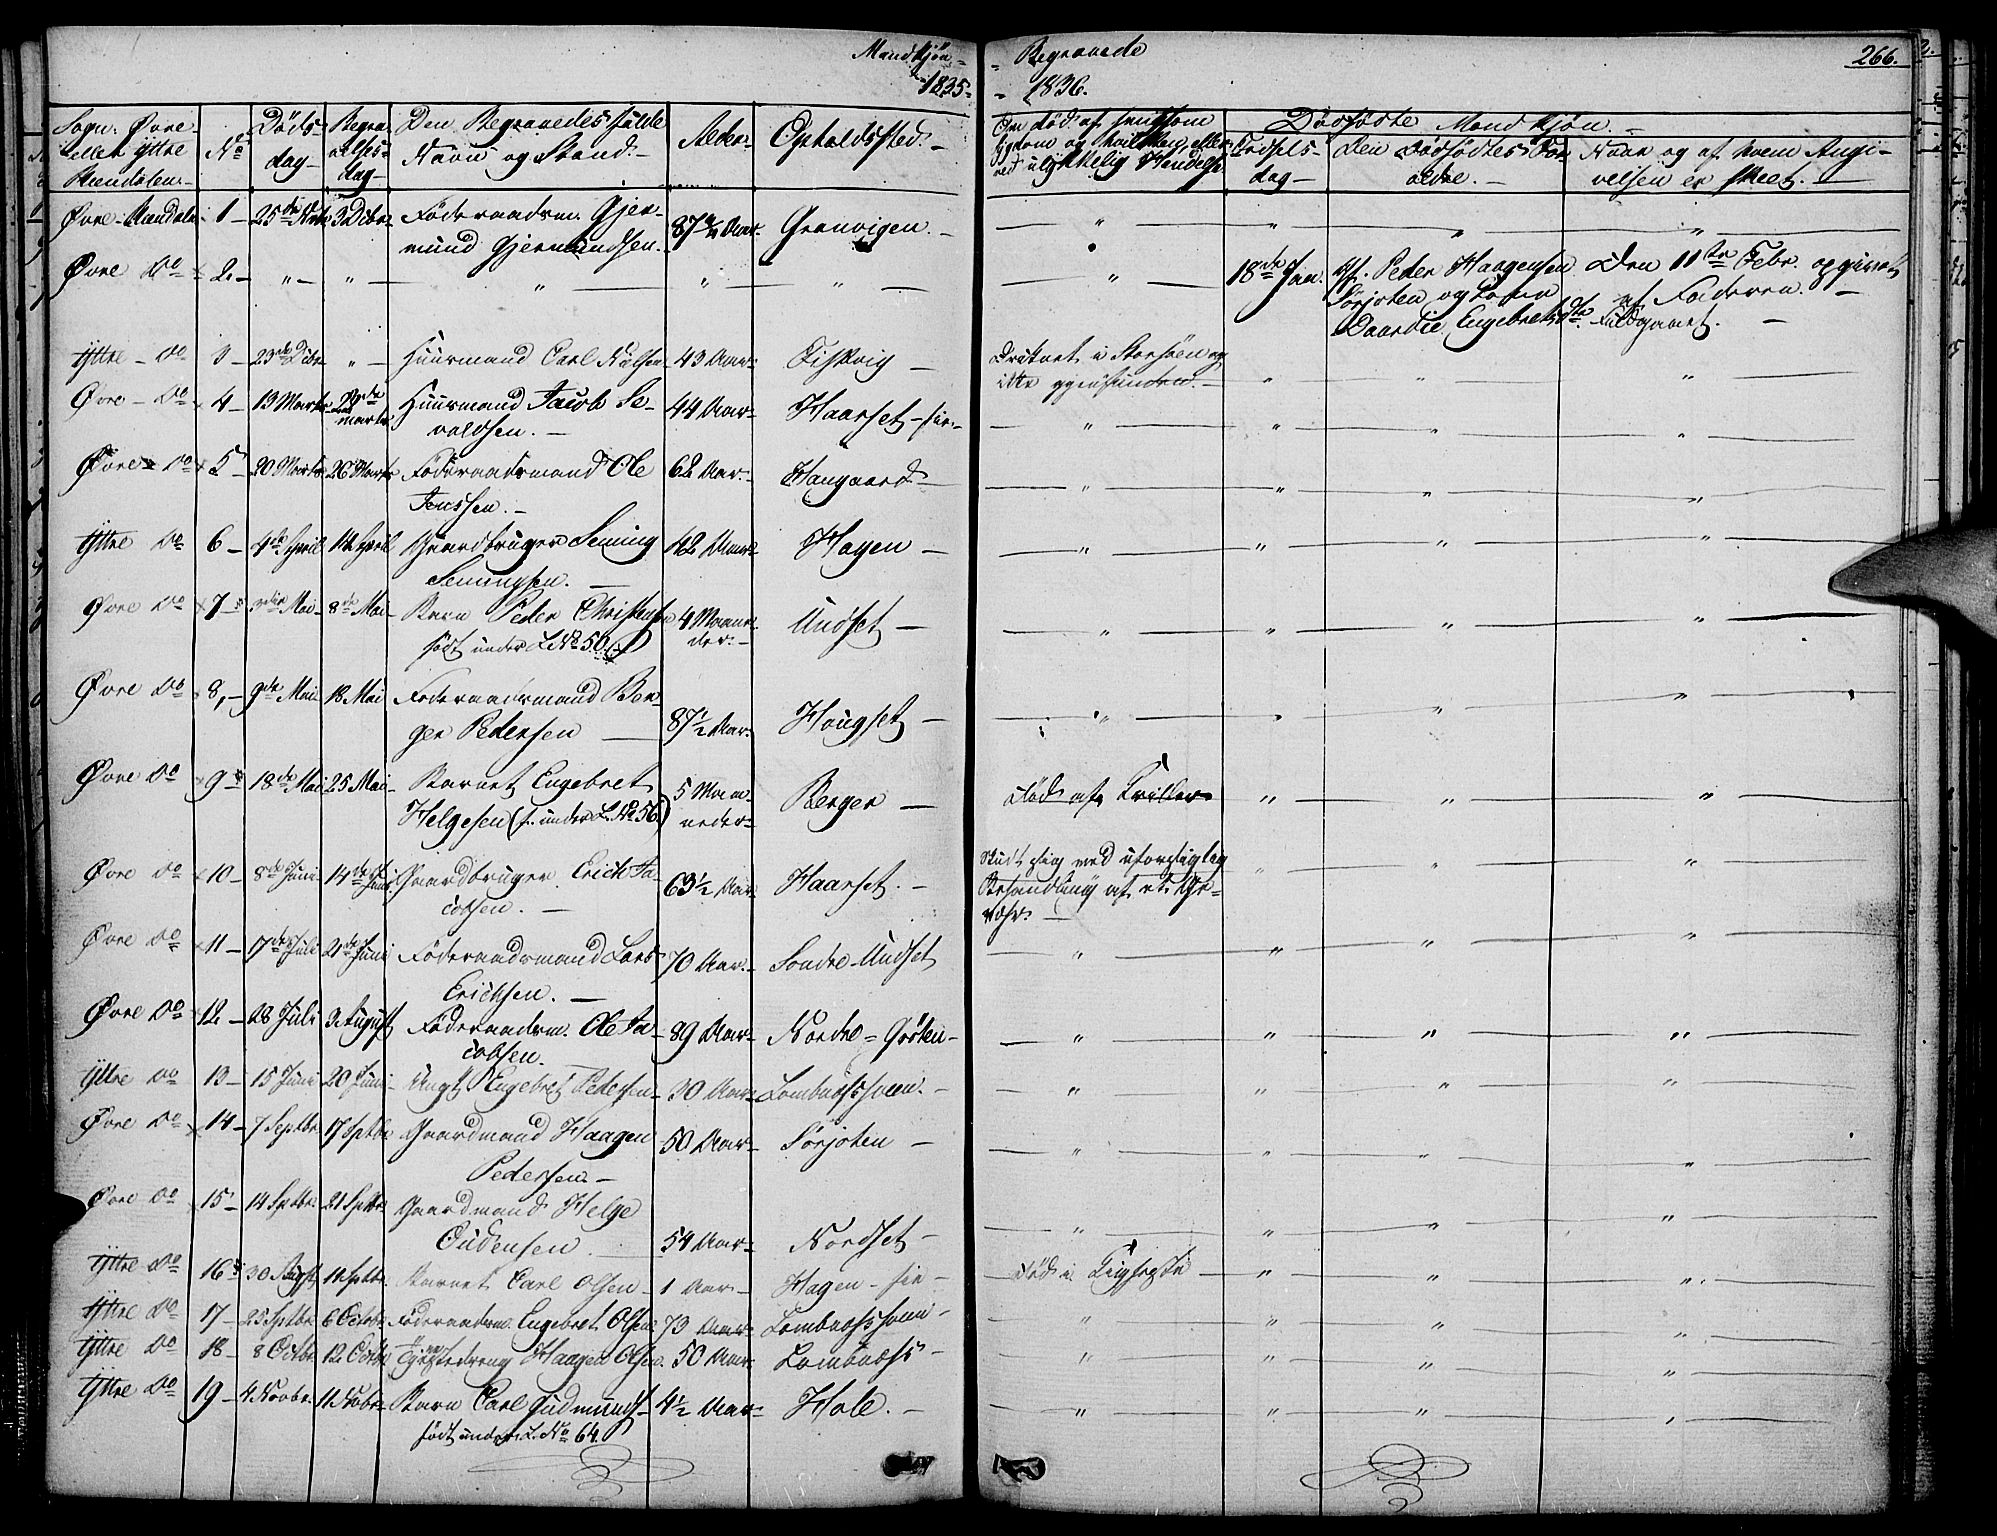 Mandkjøn - Begravede 266.
1835 - 1836.
Sogn: Øvre- eller Yttre Rendalen.
No
Døds-dag
Begravelsesdag
Den Begravedes fulde Navn og Stand.
Alder
Opholdsted.
Dødfødte Mandkjøn.
Fødselsdag
Den Dødfødtes Forældre.
Naar og af hvem Angivelsen er skeet.
Øvre-Rendalen 1 - 25de Novbr 3 Dcbr Føderaadsm. Gjermund Gjermundsen. 87 1/2 Aar. Granvigen.
Øvre Do 2 - " " " " " " 18de Jan. Peder Haagensen Sørjoten og Kone Daardie Engebretsdtr. Den 11te Febr. opgivet af Faderen. Fuldbaaret.
Yttre Do 3 - 23de Dcbr " Huusmand Carl Nielsen 43 Aar Fiskvig Druknet i Storsøen og ikke gjenfunden.
Øvre Do 4 - 13 Marts 20de Marts Huusmand Jacob Sevaldsen. 44 Aar Haarset-eie
Øvre Do 5 - 20 Marts 26 Marts Føderaadsmand Ole Jenssen. 62 Aar Haugaard
Yttre Do 6 - 4de April 14 April Gaardbruger Seming Semingsen. 42 Aar Hagen
Øvre Do 7 - Mai 8de Mai Barn Peder Christensen født under L. No 50. 4 Maaneder. Undset
Øvre Do 8 - 9de Mai 18 Mai Føderaadsmand Berger Pedersen 87 1/2 Aar Hougset
Øvre Do 9 - 18de Mai 25 Mai Barnet Engebret Helgesen (f. under L. No 56) 5 Maaneder Berger Død af
Øvre Do 10 - 8de Juni 14de Juni Gaardbruger Erich Jacobsen. 63 1/2 Aar Haarset. Skudt sig med uforsigtig Behandling af et Gevæhr.
Øvre Do 11 - 17de Juli 24de Juni Føderaadsmand Lars Erichsen. 70 Aar. Søndre-Undset
Øvre Do 12 - 28 Juli 3 August Føderaadsm. Ole Jacobsen. 89 Aar Nordre=Grøtten
Yttre Do 13 - 15 Juni 20 Juni Ungk. Engebret Pedersen 30 Aar Lombnæssveen.
Øvre Do 14 - 7 Septbr 17 Sptbr Gaardmand Haagen Pedersen 50 Aar Sørjoten
Øvre Do 15 - 14 Sptbr. 21 Sptbr Gaardmand Helge Oudensen 54 Aar Nordset
Yttre Do 16 30 Augst 11 Sptbr. Barnet Carl Olsen 1 Aar Hagen-eie Død i
Yttre Do 17 - 25 Sptbr 6 Octobr Føderaadsm. Engebret Olsen 73 Aar Lombnæssveen
Yttre Do 18 - 8 Octbr 12 Octbr Tjenestedreng Haagen Olsen. 50 Aar Lombnæss
Yttre Do 19 - 4 Novbr. 11 Nobr. Barn Carl Gudmunds. født under L. No 64. 4 1/2 Aar Hole.